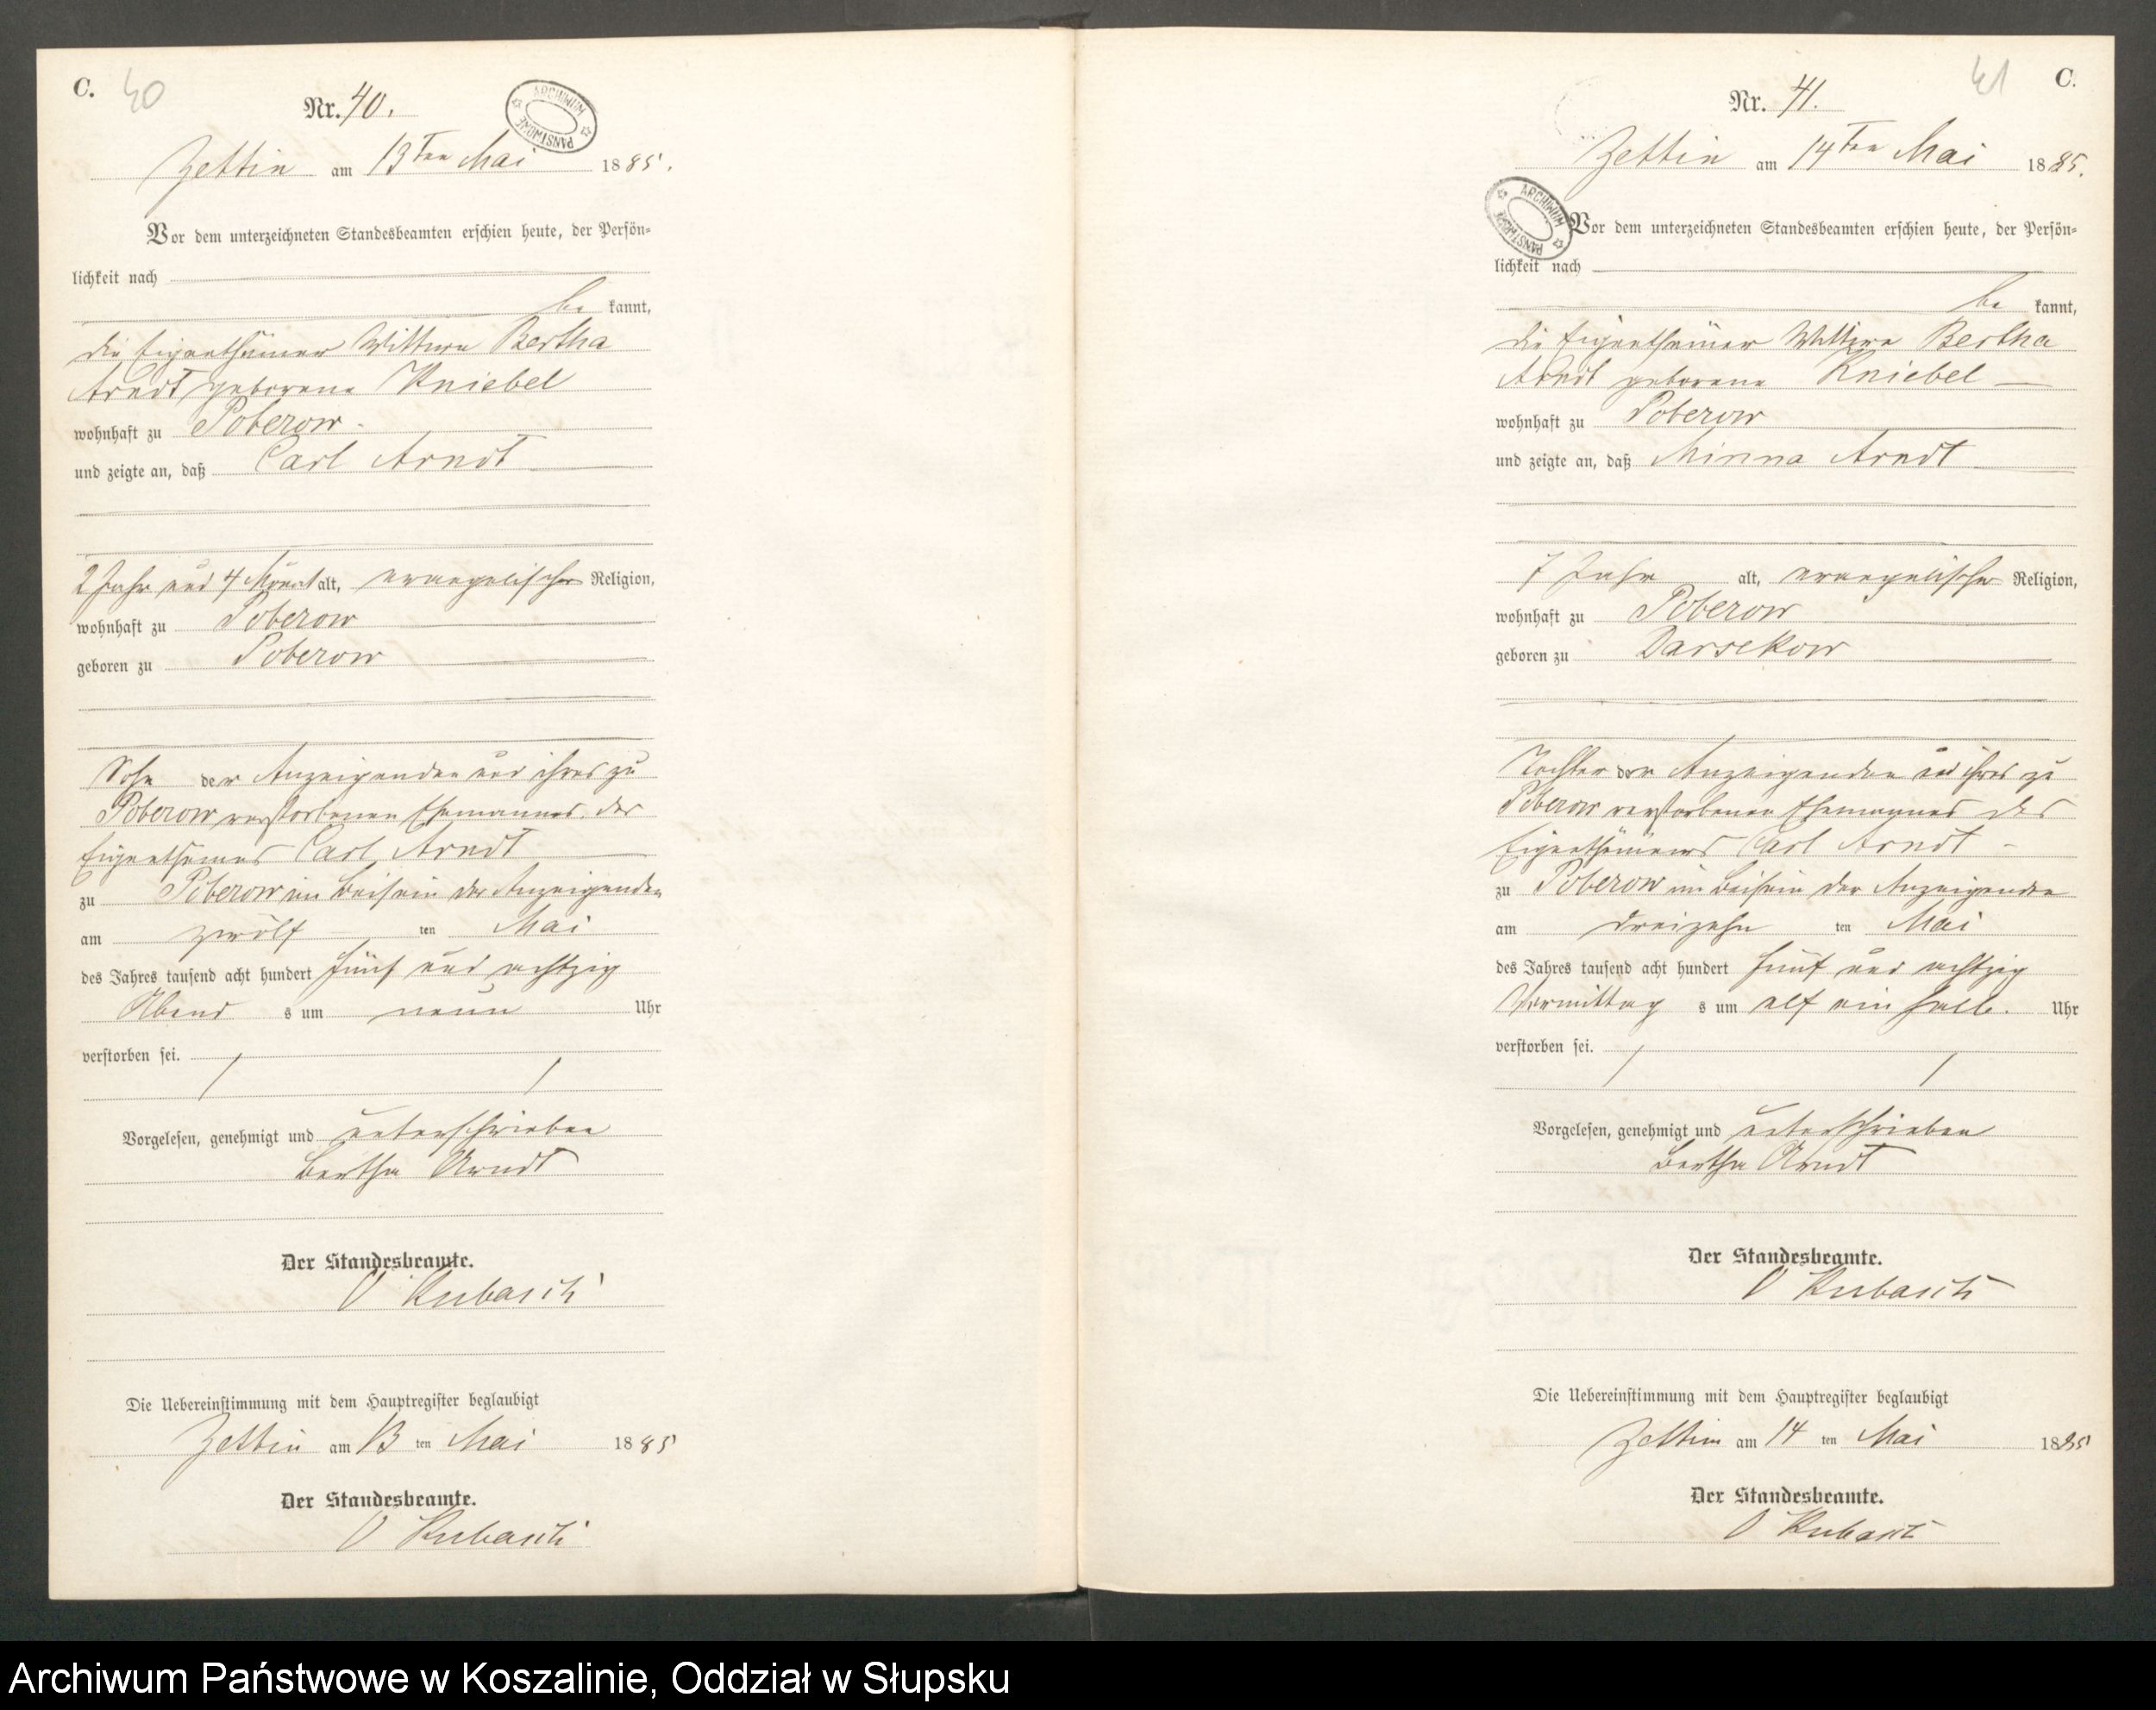 C. 40
Nr. 40.
ARCHIWUM PAŃSTWOWE
Zettin am 13ten Mai 1885.
Vor dem unterzeichneten Standesbeamten erschien heute, der Persön-
lichkeit nach
be kannt,
die Eigenthümer Wittwe Bertha
Arndt geborene Kniebel
wohnhaft zu Poberow
und zeigte an, daß Carl Arndt
2 Jahr und 4 Monat alt, evangelischer Religion,
wohnhaft zu Poberow
geboren zu Poberow
Sohn der Anzeigenden und ihres zu
Poberow verstorbenen Ehemannes, des
Eigenthümers Carl Arndt
zu Poberow im Beisein der Anzeigenden
am zwölf ten Mai
des Jahres tausend acht hundert fünf und achtzig
Abend s um neun Uhr
verstorben sei.
Vorgelesen, genehmigt und unterschrieben
Bertha Arndt
Der Standesbeamte.
Die Uebereinstimmung mit dem Hauptregister beglaubigt
Zettin am 13 ten Mai 1885
Der Standesbeamte.
41 C.
Nr. 41.
Zettin am 14ten Mai 1885.
ARCHIWUM PAŃSTWOWE
Vor dem unterzeichneten Standesbeamten erschien heute, der Persön-
lichkeit nach
be kannt,
die Eigenthümer Wittwe Bertha
Arndt geborene Kniebel
wohnhaft zu Poberow
und zeigte an, daß Minna Arndt
7 Jahr alt, evangelischer Religion,
wohnhaft zu Poberow
geboren zu Darsekow
Tochter der Anzeigenden und ihres zu
Poberow verstorbenen Ehemannes des
Eigenthümers Carl Arndt
zu Poberow im Beisein der Anzeigenden
am dreizehn ten Mai
des Jahres tausend acht hundert fünf und achtzig
Vormittag s um elf ein halb Uhr
verstorben sei.
Vorgelesen, genehmigt und unterschrieben
Bertha Arndt
Der Standesbeamte.
Die Uebereinstimmung mit dem Hauptregister beglaubigt
Zettin am 14 ten Mai 1885
Der Standesbeamte.
Archiwum Państwowe w Koszalinie, Oddział w Słupsku